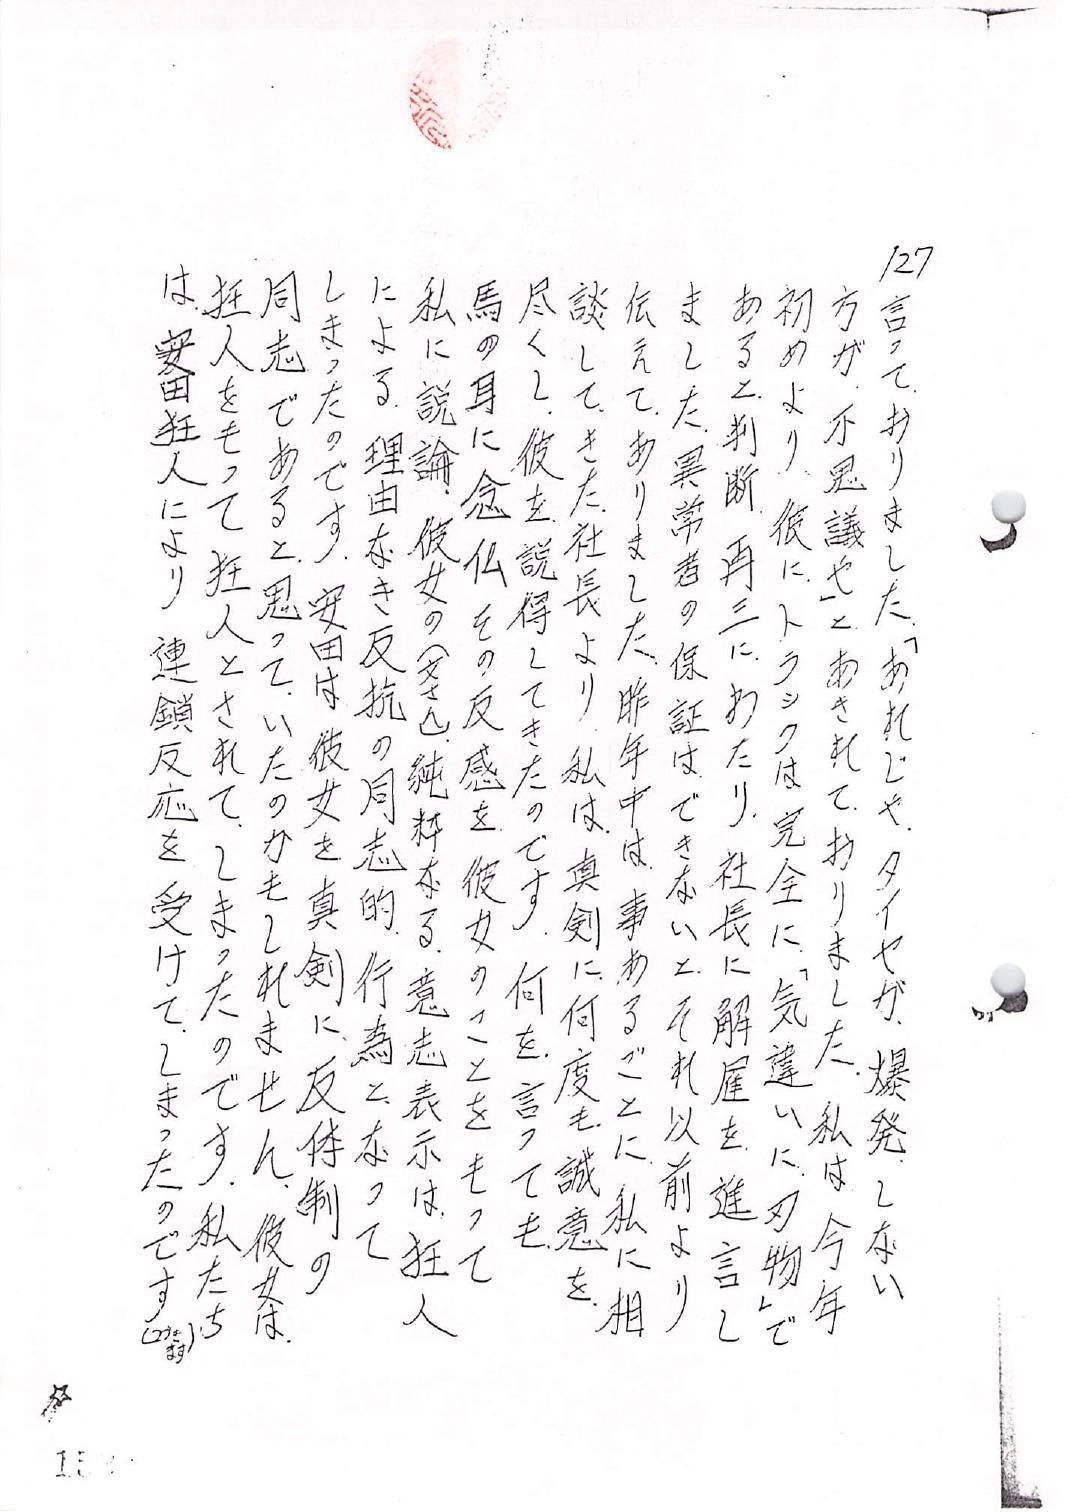 127
言って、おりました。「あれじゃ、タイヤが、爆発、しない
方が、不思議や」と、あきれて、おりました。私は、今年
初めより、彼に、トラックは、完全に、「気違いに、刃物」で
あると、判断、再三に、わたり、社長に、解雇を、進言し
ました。異常者の、保証は、できないと、それ以前より
伝えて、ありました。昨年中は、事あるごとに、私に、相
談して、きた、社長より、私は、真剣に、何度も、誠意を、
尽くし、彼を、説得してきたのです。何を、言っても、
馬の耳に念仏その反感を、彼女のことをもって
私に説論、彼女の(父さん)、純粋なる、意志表示は、狂人
による、理由なき反抗の同志的、行為と、なって
しまったのです。安田は、彼女を、真剣に、反体制の
同志であると、思って、いたのかもしれません、彼女は、
狂人をもって狂人とされて、しまったのです。私たち
は、安田狂人により、連鎖反応を、受けて、しまったのです
(つづきます)